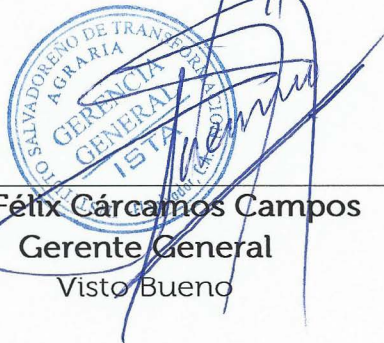 SALVADOREÑO DE TRANSFORMACION
AGRARIA
GERENCIA
GENERAL
ISTA
Félix Cárcamos Campos
Gerente General
Visto Bueno